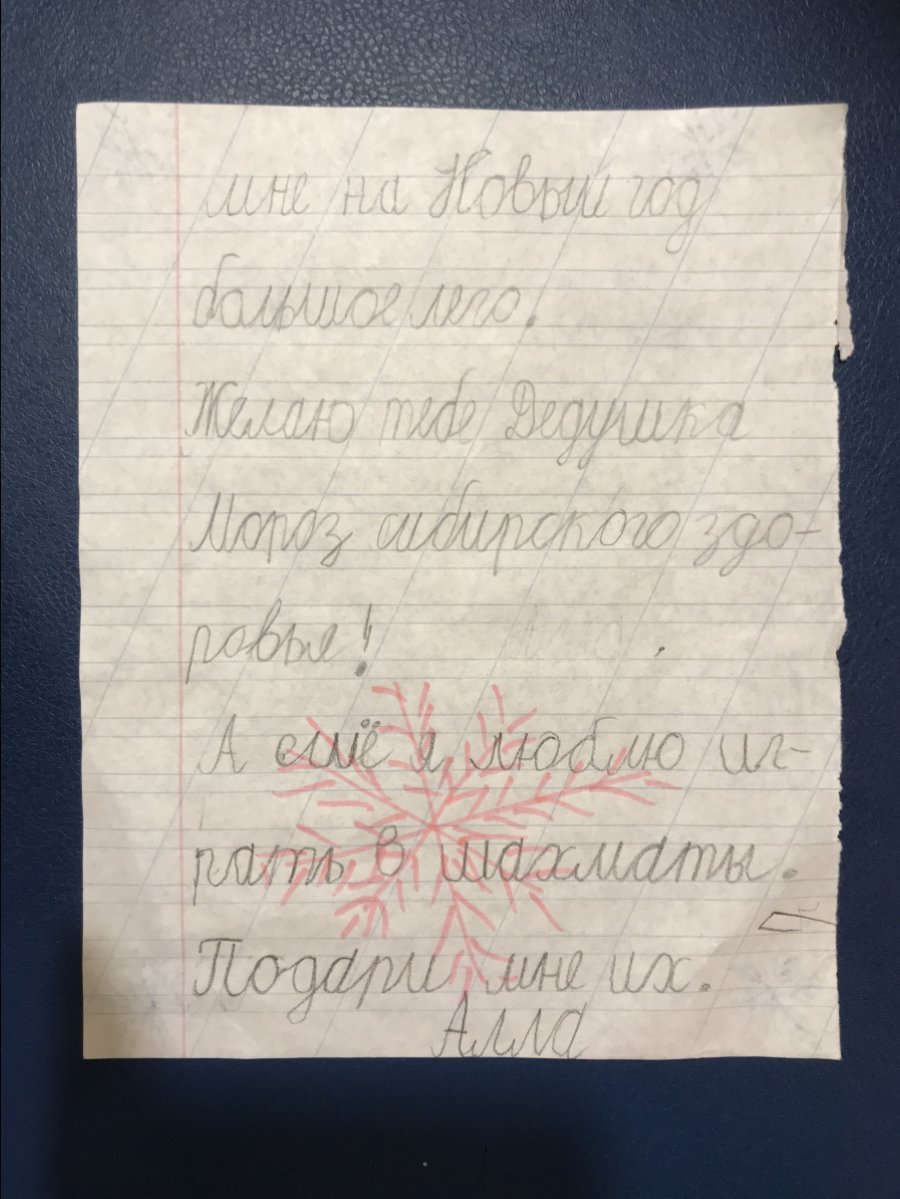 мне на Новый год
большое лего.
Желаю тебе Дедушка
Мороз сибирского здо-
ровья!
А ещё я люблю иг-
рать в шахматы.
Подари мне их.
Алла